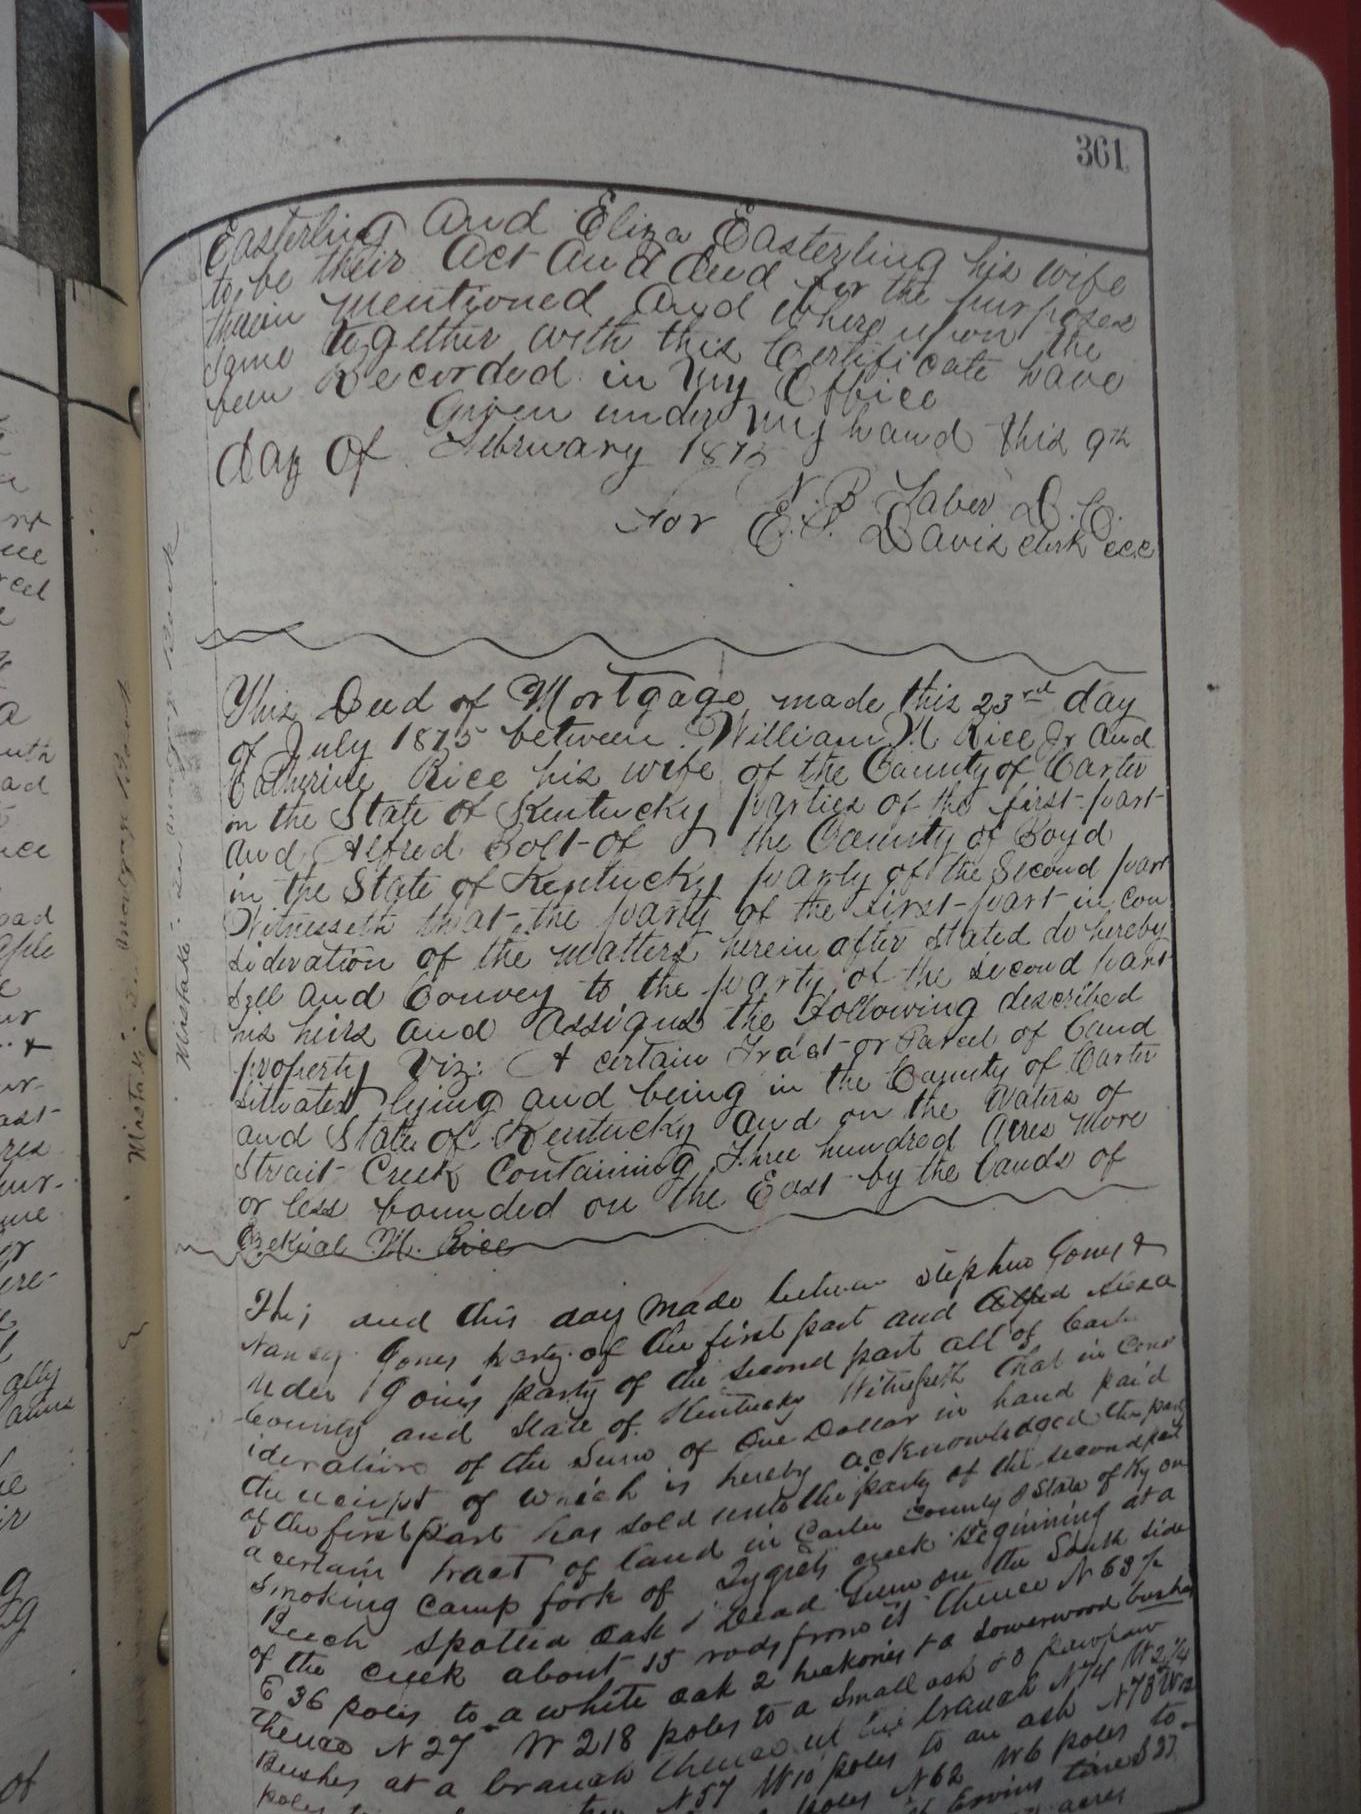 361
Easterling and Eliza Easterling his wife
to be their Act and deed for the purposes
therein mentioned and where upon the
same together with this Certificate have
been Recorded in my Office
Given under my hand this 9th
day of February 1875
N. B Taber D.C.
For E. S. Davis clerk ccc
Mistake in mortgage Book
Mistake in mortgage Book
This Deed of Mortgage made this 23rd day
of July 1875 between William N Rice Jr and
Catherine Rice his wife of the County of Carter
in the State of Kentucky parties of the first part
and Alfred Bolt of the County of Boyd
in the State of Kentucky party of the Second part
Witnesseth that the party of the first part in con
sideration of the matters herein after stated do hereby
Sell and Convey to the party of the second part
his heirs and assigns the following described
property Viz: A certain Tract or Parcel of Land
situated lying and being in the County of Carter
and State of Kentucky and on the Waters of
Strait Creek Containing Three hundred Acres more
or less bounded on the East by the lands of
Ezekial M. Rice
This and this day made between Stephen Jones &
Nancy Jones party of the first part and Alexa
nder Jones party of the second part all of Carter
County and State of Kentucky Witnesseth That in cons
ideration of the Sum of One Dollar in hand paid
the receipt of which is hereby acknowledged the party
of the first part has sold unto the party of the second part
a certain tract of land in Carter County & State of Ky on
Smoking Camp fork of Tygrets creek Beginning at a
Beech spotted oak & Dead Gum on the South side
of the creek about 15 rods from it thence N 63 1/2
E 36 poles to a white oak 2 hickories to a sowerwood bushes
thence N 27 W 218 poles to a small ash & 3 pawpaw
Bushes at a branch thence up the branch N 74 W 2 1/4
poles N 57 W 10 poles to an ash N 78 W 12
poles N 62 W 6 poles to
Ervins line S 27
acres